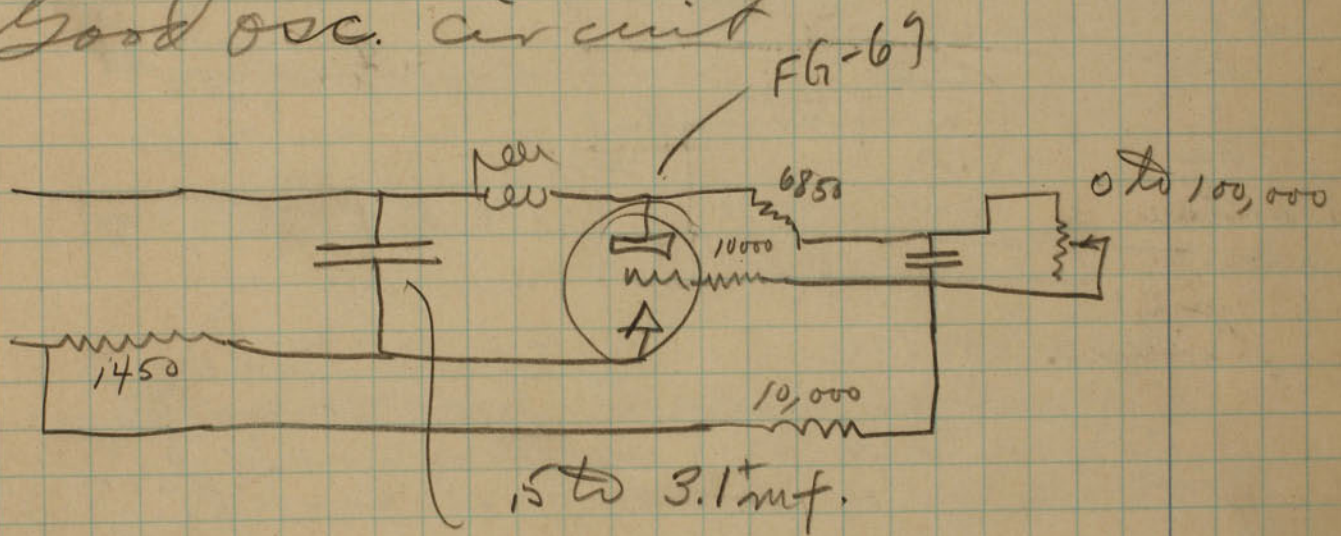 Good osc. circuit
FG-67
6850
0 to 100,000
10000
1450
10,000
.5 to 3.1+ mf.